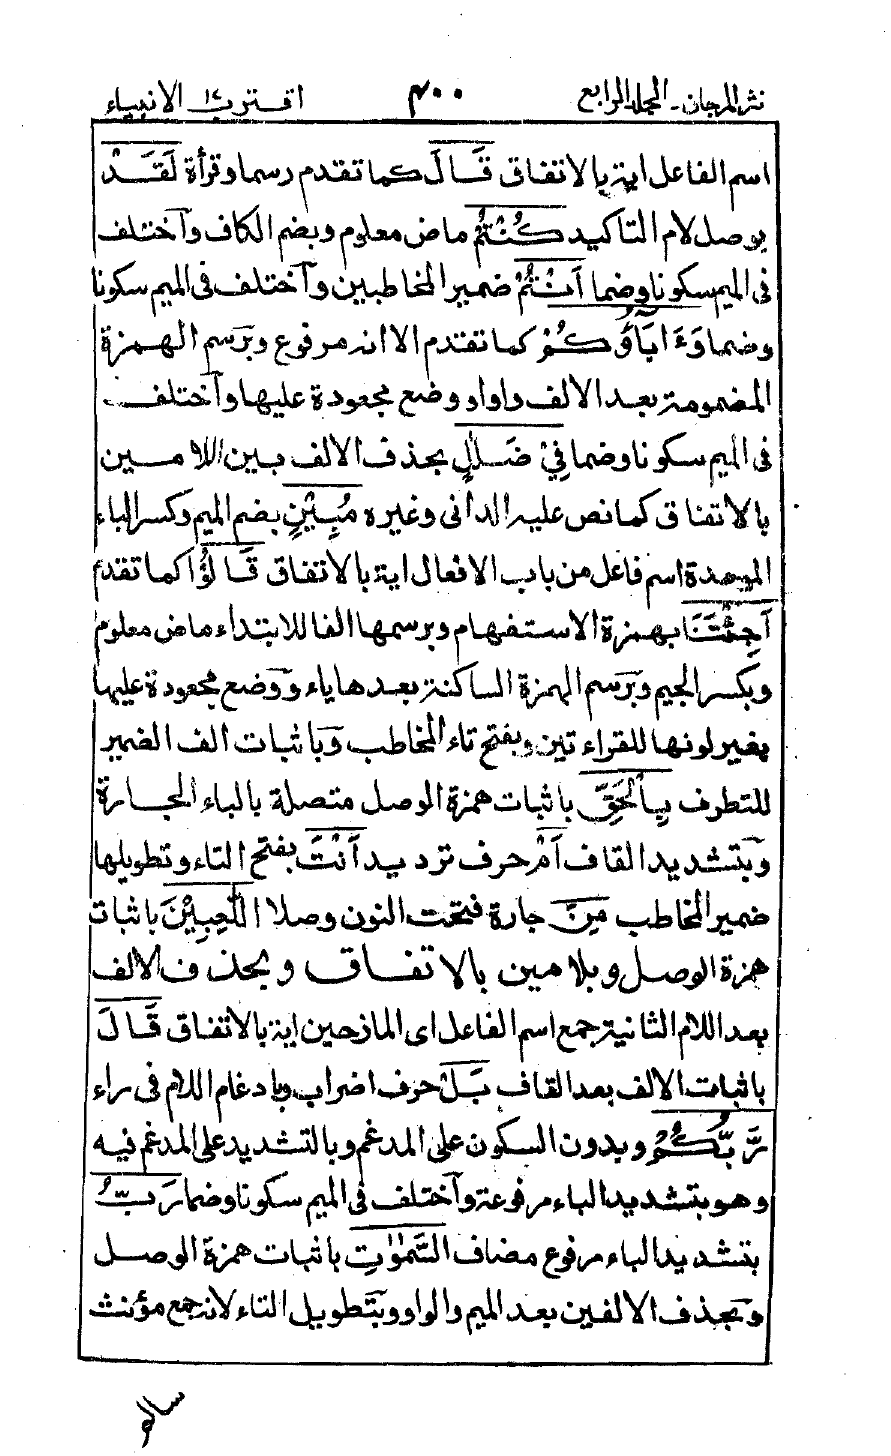 نثر المرجان۔ المجلد الرابع ٤٠٠ اقترب ١٧ الانبياء
اسم الفاعل اية بالاتفاق قَالَ كما تقدم رسما وقرأة لَقَدْ
بوصل لام التاكيد كُنْتُمْ ماض معلوم وبضم الكاف وآختلف
فى الميم سكونا وضما اَنْتُمْ ضمير المخاطبين وآختلف فى الميم سكونا
وضما وَءَابَآؤُكُمْ كما تقدم الا انه مرفوع وبرسم الهمزة
المضمومة بعد الالف واوا ووضع مجعودة عليها وآختلف
فى الميم سكونا وضما فِيْ ضَلٰلٍ بحذف الالف بين اللامين
بالاتفاق كما نص عليه الدانى وغيره مُبِيْنٍ بضم الميم وكسر الباء
الموحدة اسم فاعل من باب الافعال اية بالاتفاق قَالُوْٓا كما تقدم
اَجِئْتَنَا بهمزة الاستفهام وبرسمها الفا للابتداء ماض معلوم
وبكسر الجيم وبرسم الهمزة الساكنة بعدها ياء ووضع مجعودة عليها
بغير لونها للقراءتين وبفتح تاء المخاطب وباثبات الف الضمير
للتطرف بِالْحَقِّ باثبات همزة الوصل متصلة بالباء الجارة
وبتشديد القاف اَمْ حرف ترديد اَنْتَ بفتح التاء وتطويلها
ضمير المخاطب مِنَ جارة فتحت النون وصلا اللّٰعِبِيْنَ باثبات
همزة الوصل وبلامين بالاتفاق وبحذف الالف
بعد اللام الثانية جمع اسم الفاعل اى المازحين اية بالاتفاق قَالَ
باثبات الالف بعد القاف بَلْ حرف اضراب وبادغام اللام فى راء
رَّبُّكُمْ وبدون السكون على المدغم وبالتشديد على المدغم فيه
وهو بتشديد الباء مرفوعة وآختلف فى الميم سكونا وضما رَبُّ
بتشديد الباء مرفوع مضاف السَّمٰوٰتِ باثبات همزة الوصل
وبحذف الالفين بعد الميم والواو وبتطويل التاء لانه جمع مؤنث
سالم